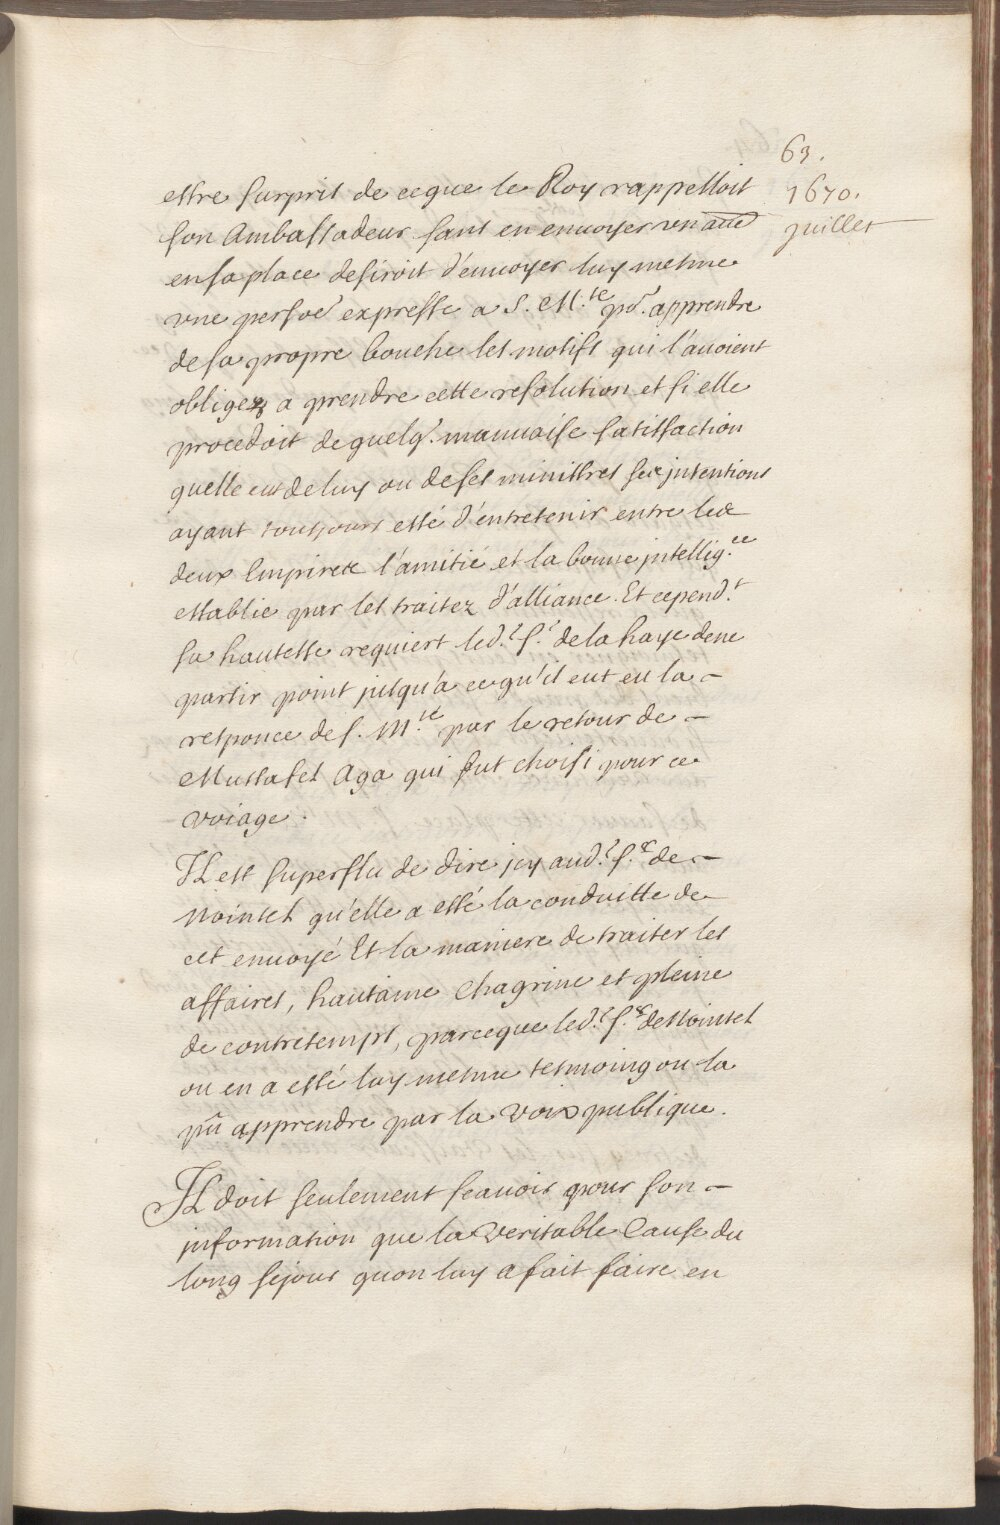 63.
1670.
juillet
estre surpris de ce que le Roy rappelloit
son Ambassadeur sans en enuoyer un aut͞e
en sa place desiroit d'enuoyer luy mesme
vne persoe͞ expresse a S. M.te po.r apprendre
de sa propre bouche les motifs qui l'auoient
obligez a prendre cette resolution et si elle
procedoit de quelq.e mauuaise satisfaction
quelle eut de luy ou de ses ministres ses jntentions
ayant toutjours esté d'entretenir entre les
deux Empires l'amitié et la bonne jntellig.ce
establie par les traitez d'alliance. Et cepend.t
sa hautesse requiert led.t s.r de la haye de ne
partir point jusqu'a ce qu'il eut eu la –
responce de s. M.te par le retour de –
Mustafel Aga qui fut choisi pour ce
voiage.
Il est superflu de dire jcy aud.t s.r de –
Nointel qu'elle a esté la conduitte de
cet enuoyé Et la maniere de traiter les
affaires, hautaine chagrine et pleine
de contretemps, parceque led.t s.r de Nointel
ou en a esté luy mesme tesmoing ou la
pû apprendre par la voix publique.
Il doit seulement scauoir pour son –
jnformation que la veritable Cause du
long sejour quon luy a fait faire en